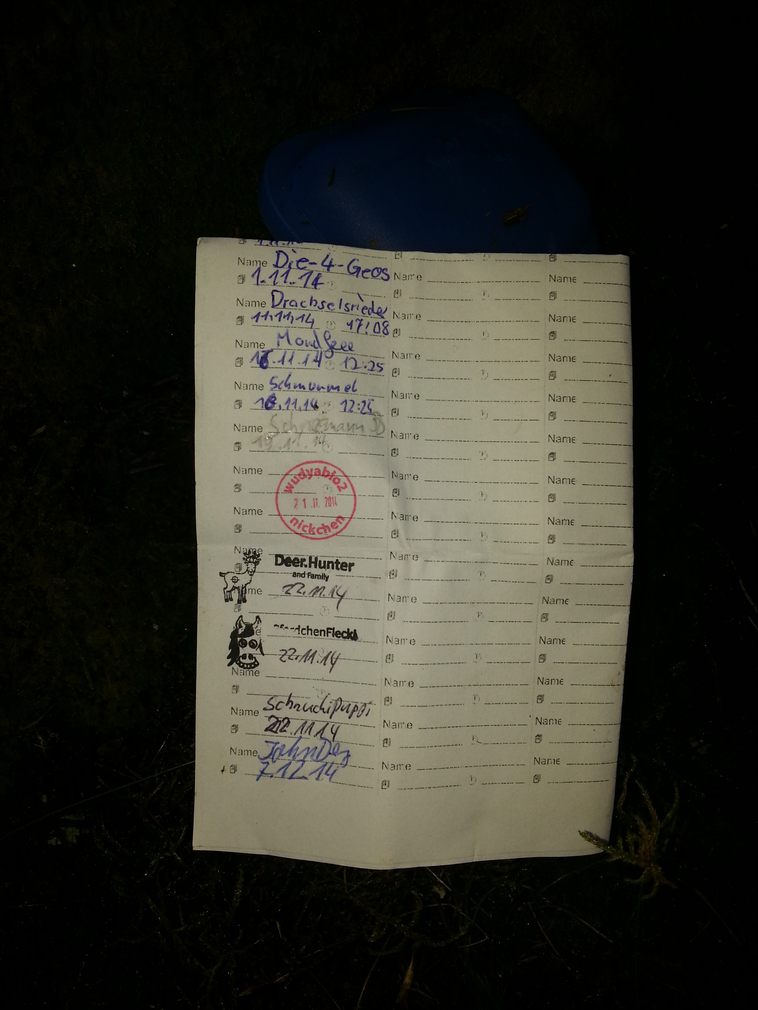 Name Die-4-Geos Name Name
1.11.14
Name Drachselsrieder Name Name
11.11.14 17:08
Name Mondfee Name Name
16.11.14 12:25
Name Schmummel Name Name
16.11.14 12:25
Name Name Name
19.11.14
Name Name Name
wudyabio2
21.11.2014
Name Name Name
nickchen
Name Name Name
Deer.Hunter
and Family
Name 22.11.14 Name Name
Name Name
22.11.14
Name Name Name
Name Name Name
22.11.14
Name JohnDez Name Name
7.12.14